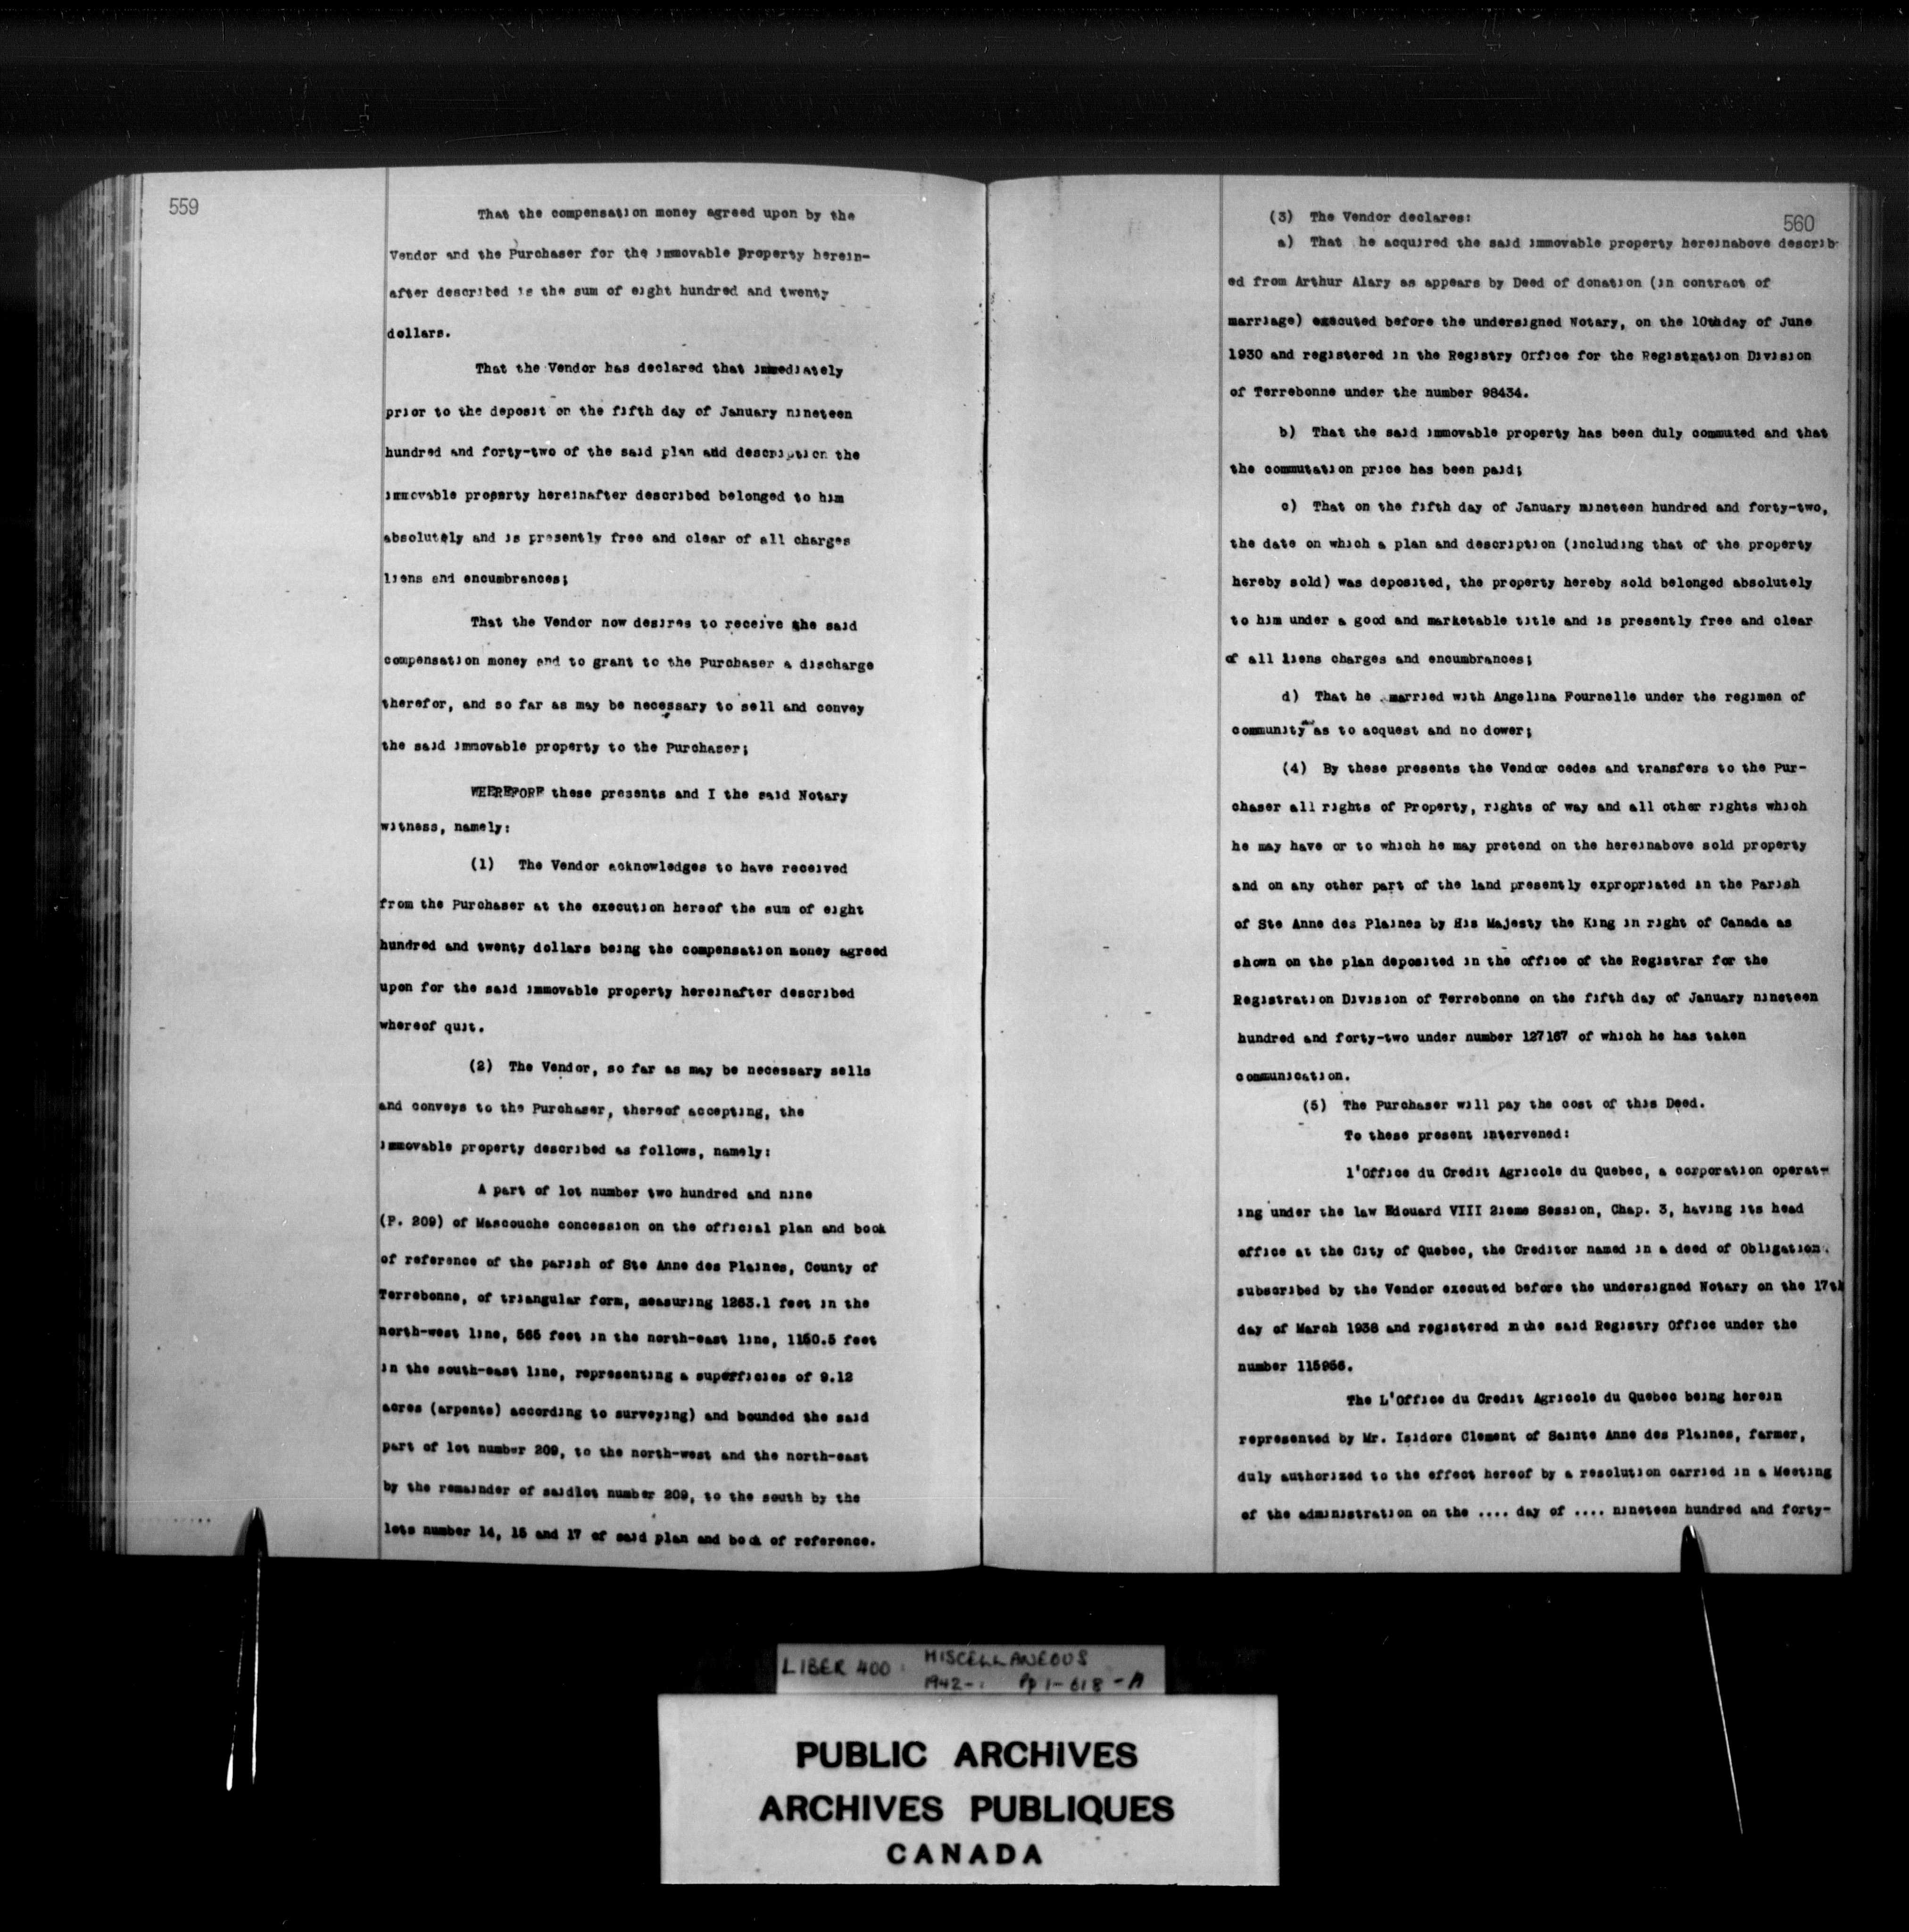 559
That the compensation money agreed upon by the
Vendor and the Purchaser for the immovable Property herein-
after described is the sum of eight hundred and twenty
dollars.
That the Vendor has declared that immediately
prior to the deposit on the fifth day of January nineteen
hundred and forty-two of the said plan and description the
immovable property hereinafter described belonged to him
absolutely and is presently free and clear of all charges
liens and encumbrances;
That the Vendor now desires to receive the said
compensation money and to grant to the Purchaser a discharge
therefor, and so far as may be necessary to sell and convey
the said immovable property to the Purchaser;
WHEREFORE these presents and I the said Notary
witness, namely:
(1) The Vendor acknowledges to have received
from the Purchaser at the execution hereof the sum of eight
hundred and twenty dollars being the compensation money agreed
upon for the said immovable property hereinafter described
whereof quit.
(2) The Vendor, so far as may be necessary sells
and conveys to the Purchaser, thereof accepting, the
immovable property described as follows, namely:
A part of lot number two hundred and nine
(P. 209) of Mascouche concession on the official plan and book
of reference of the parish of Ste Anne des Plaines, County of
Terrebonne, of triangular form, measuring 1263.1 feet in the
north-west line, 565 feet in the north-east line, 1150.5 feet
in the south-east line, representing a superficies of 9.12
acres (arpents) according to surveying) and bounded the said
part of lot number 209, to the north-west and the north-east
by the remainder of saidlot number 209, to the south by the
lots number 14, 15 and 17 of said plan and book of reference.
560
(3) The Vendor declares:
a) That he acquired the said immovable property hereinabove describ-
ed from Arthur Alary as appears by Deed of donation (in contract of
marriage) executed before the undersigned Notary, on the 10thday of June
1930 and registered in the Registry Office for the Registration Division
of Terrebonne under the number 98434.
b) That the said immovable property has been duly commuted and that
the commutation price has been paid;
c) That on the fifth day of January nineteen hundred and forty-two,
the date on which a plan and description (including that of the property
hereby sold) was deposited, the property hereby sold belonged absolutely
to him under a good and marketable title and is presently free and clear
of all liens charges and encumbrances;
d) That he married with Angelina Fournelle under the regimen of
community as to acquest and no dower;
(4) By these presents the Vendor cedes and transfers to the Pur-
chaser all rights of Property, rights of way and all other rights which
he may have or to which he may pretend on the hereinabove sold property
and on any other part of the land presently expropriated in the Parish
of Ste Anne des Plaines by His Majesty the King in right of Canada as
shown on the plan deposited in the office of the Registrar for the
Registration Division of Terrebonne on the fifth day of January nineteen
hundred and forty-two under number 127167 of which he has taken
communication.
(5) The Purchaser will pay the cost of this Deed.
To these present intervened:
l'Office du Credit Agricole du Quebec, a corporation operat-
ing under the law Edouard VIII 2ieme Session, Chap. 3, having its head
office at the City of Quebec, the Creditor named in a deed of Obligation
subscribed by the Vendor executed before the undersigned Notary on the 17th
day of March 1938 and registered in the said Registry Office under the
number 115956.
The L'Office du Credit Agricole du Quebec being herein
represented by Mr. Isidore Clement of Sainte Anne des Plaines, farmer,
duly authorized to the effect hereof by a resolution carried in a Meeting
of the administration on the .... day of .... nineteen hundred and forty-
LIBER 400 MISCELLANEOUS
1942- Pp 1-618-A
PUBLIC ARCHIVES
ARCHIVES PUBLIQUES
CANADA